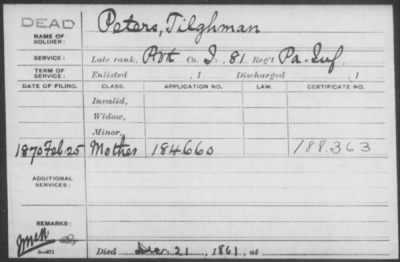 DEAD
NAME OF SOLDIER: Peters, Tilghman
SERVICE: Late rank, Pvt Co. I. 81 Reg't Pa. Inf.
TERM OF SERVICE: Enlisted , 1 Discharged , 1
DATE OF FILING. CLASS. APPLICATION NO. LAW. CERTIFICATE NO.
Invalid,
Widow,
Minor,
1870 Feb. 25 Mother 184660 188.363
ADDITIONAL SERVICES:
REMARKS:
Died Dec 21, 1861, at